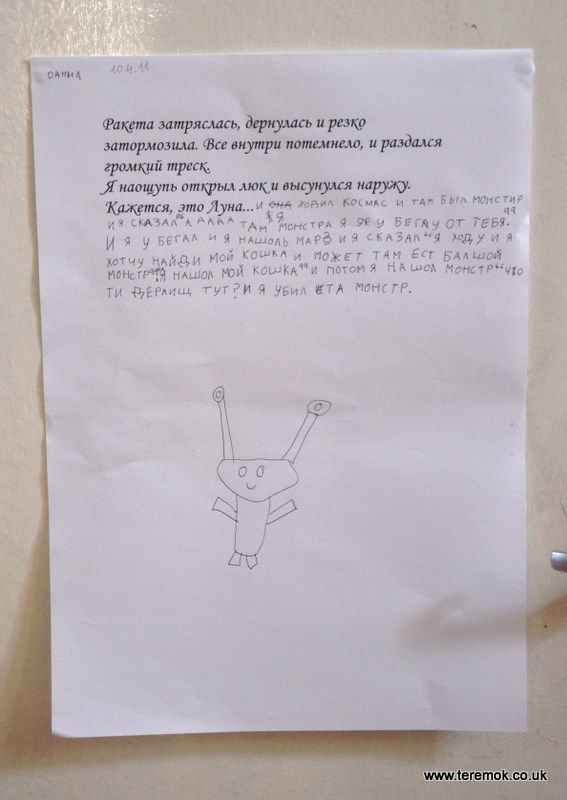 ДАНИЛ 10.4.11
Ракета затряслась, дернулась и резко
затормозила. Все внутри потемнело, и раздался
громкий треск.
Я наощупь открыл люк и высунулся наружу.
Кажется, это Луна...И ОНА ХОДИЛ КОСМАС И ТАМ БЫЛ МОНСТИР
И Я СКАЗАЛ “А АААА ТАМ МОНСТРА Я У БЕГАУ ОТ ТЕБЯ.”
И Я У БЕГАЛ И Я НАШОЛЬ МАРЗ И Я СКАЗАЛ “Я ХОДУ И Я
ХОТЧУ НАЙДИ МОЙ КОШКА И МОЖЕТ ТАМ ЕСТ БАЛШОЙ
МОНСТР” “Я НАШОЛ МОЙ КОШКА” И ПОТОМ Я НАШОЛ МОНСТР “ЧТО
ТИ ДЕРАИЩ ТУТ? И Я УБИЛ ЕТА МОНСТР.
www.teremok.co.uk